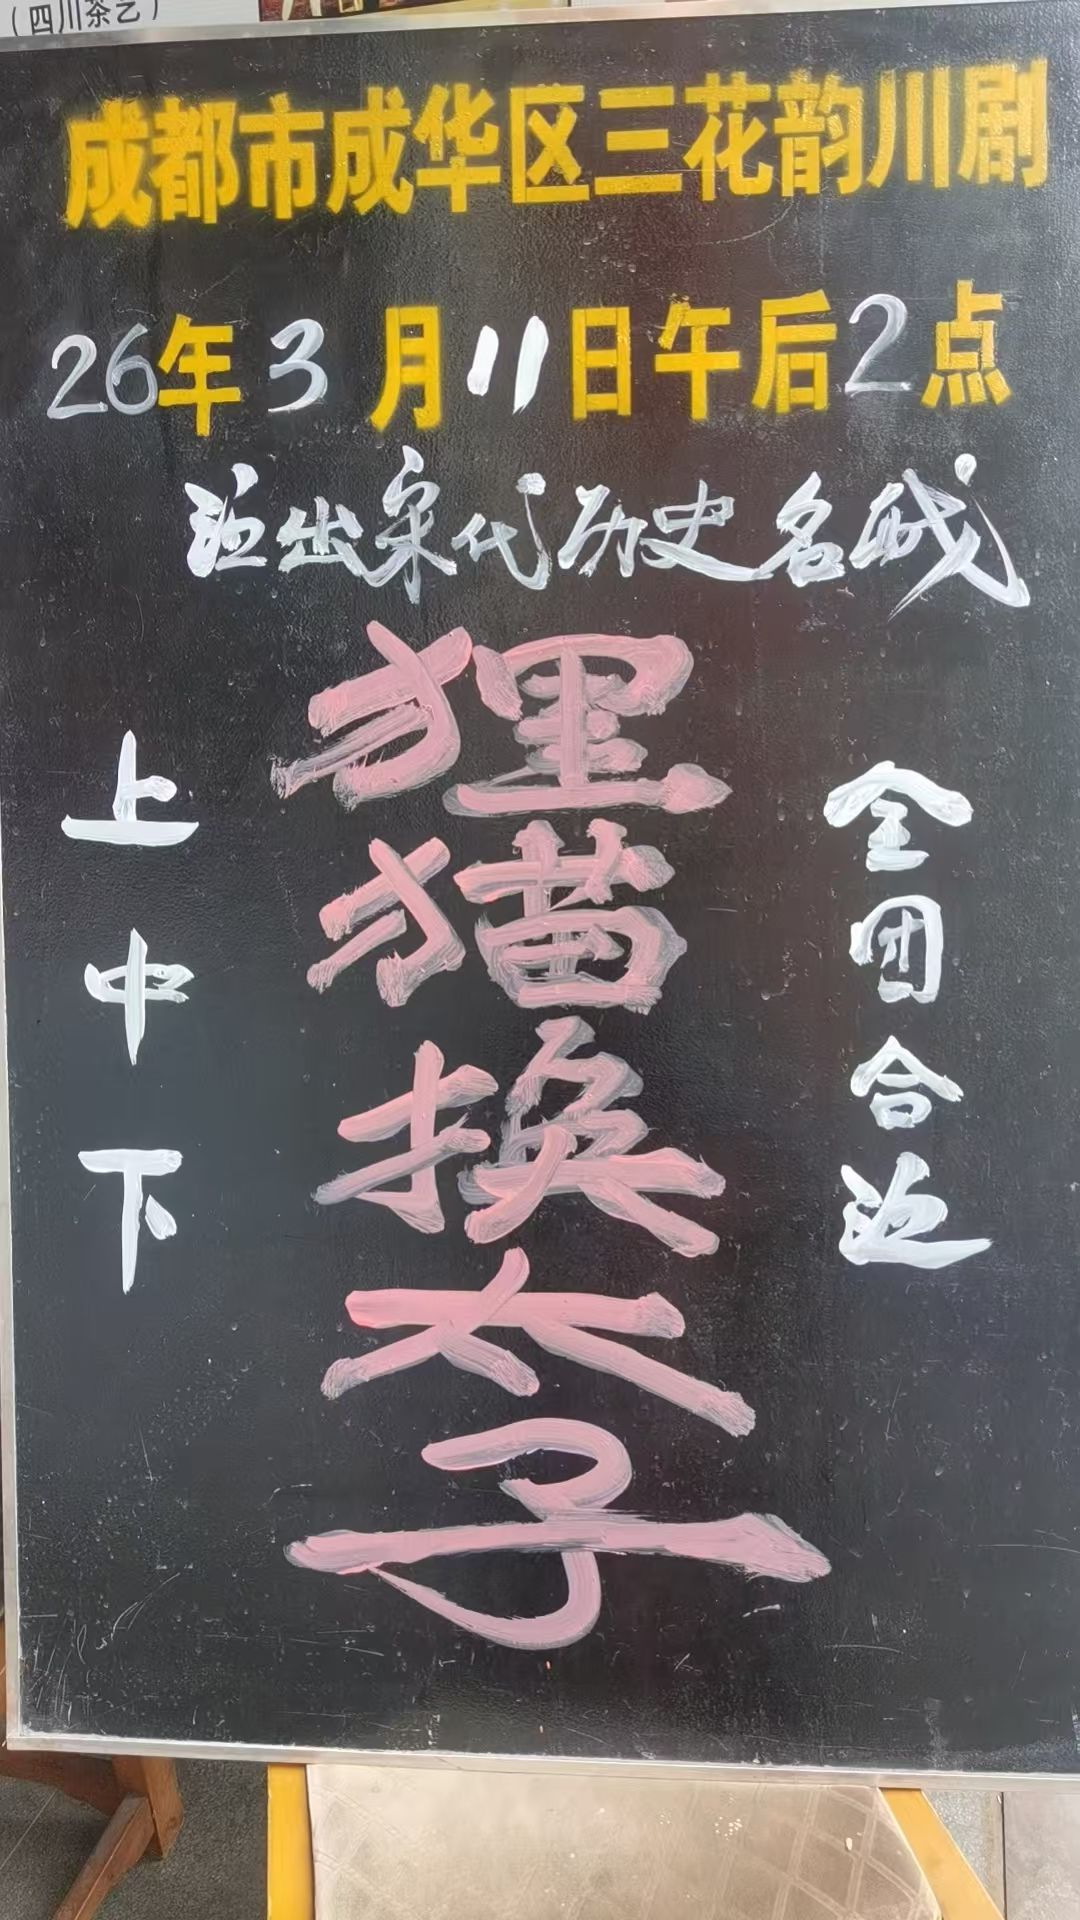 （四川茶艺）
成都市成华区三花韵川剧
26年3月11日午后2点
演出宋代历史名戏
狸猫换太子
上中下
全团合演